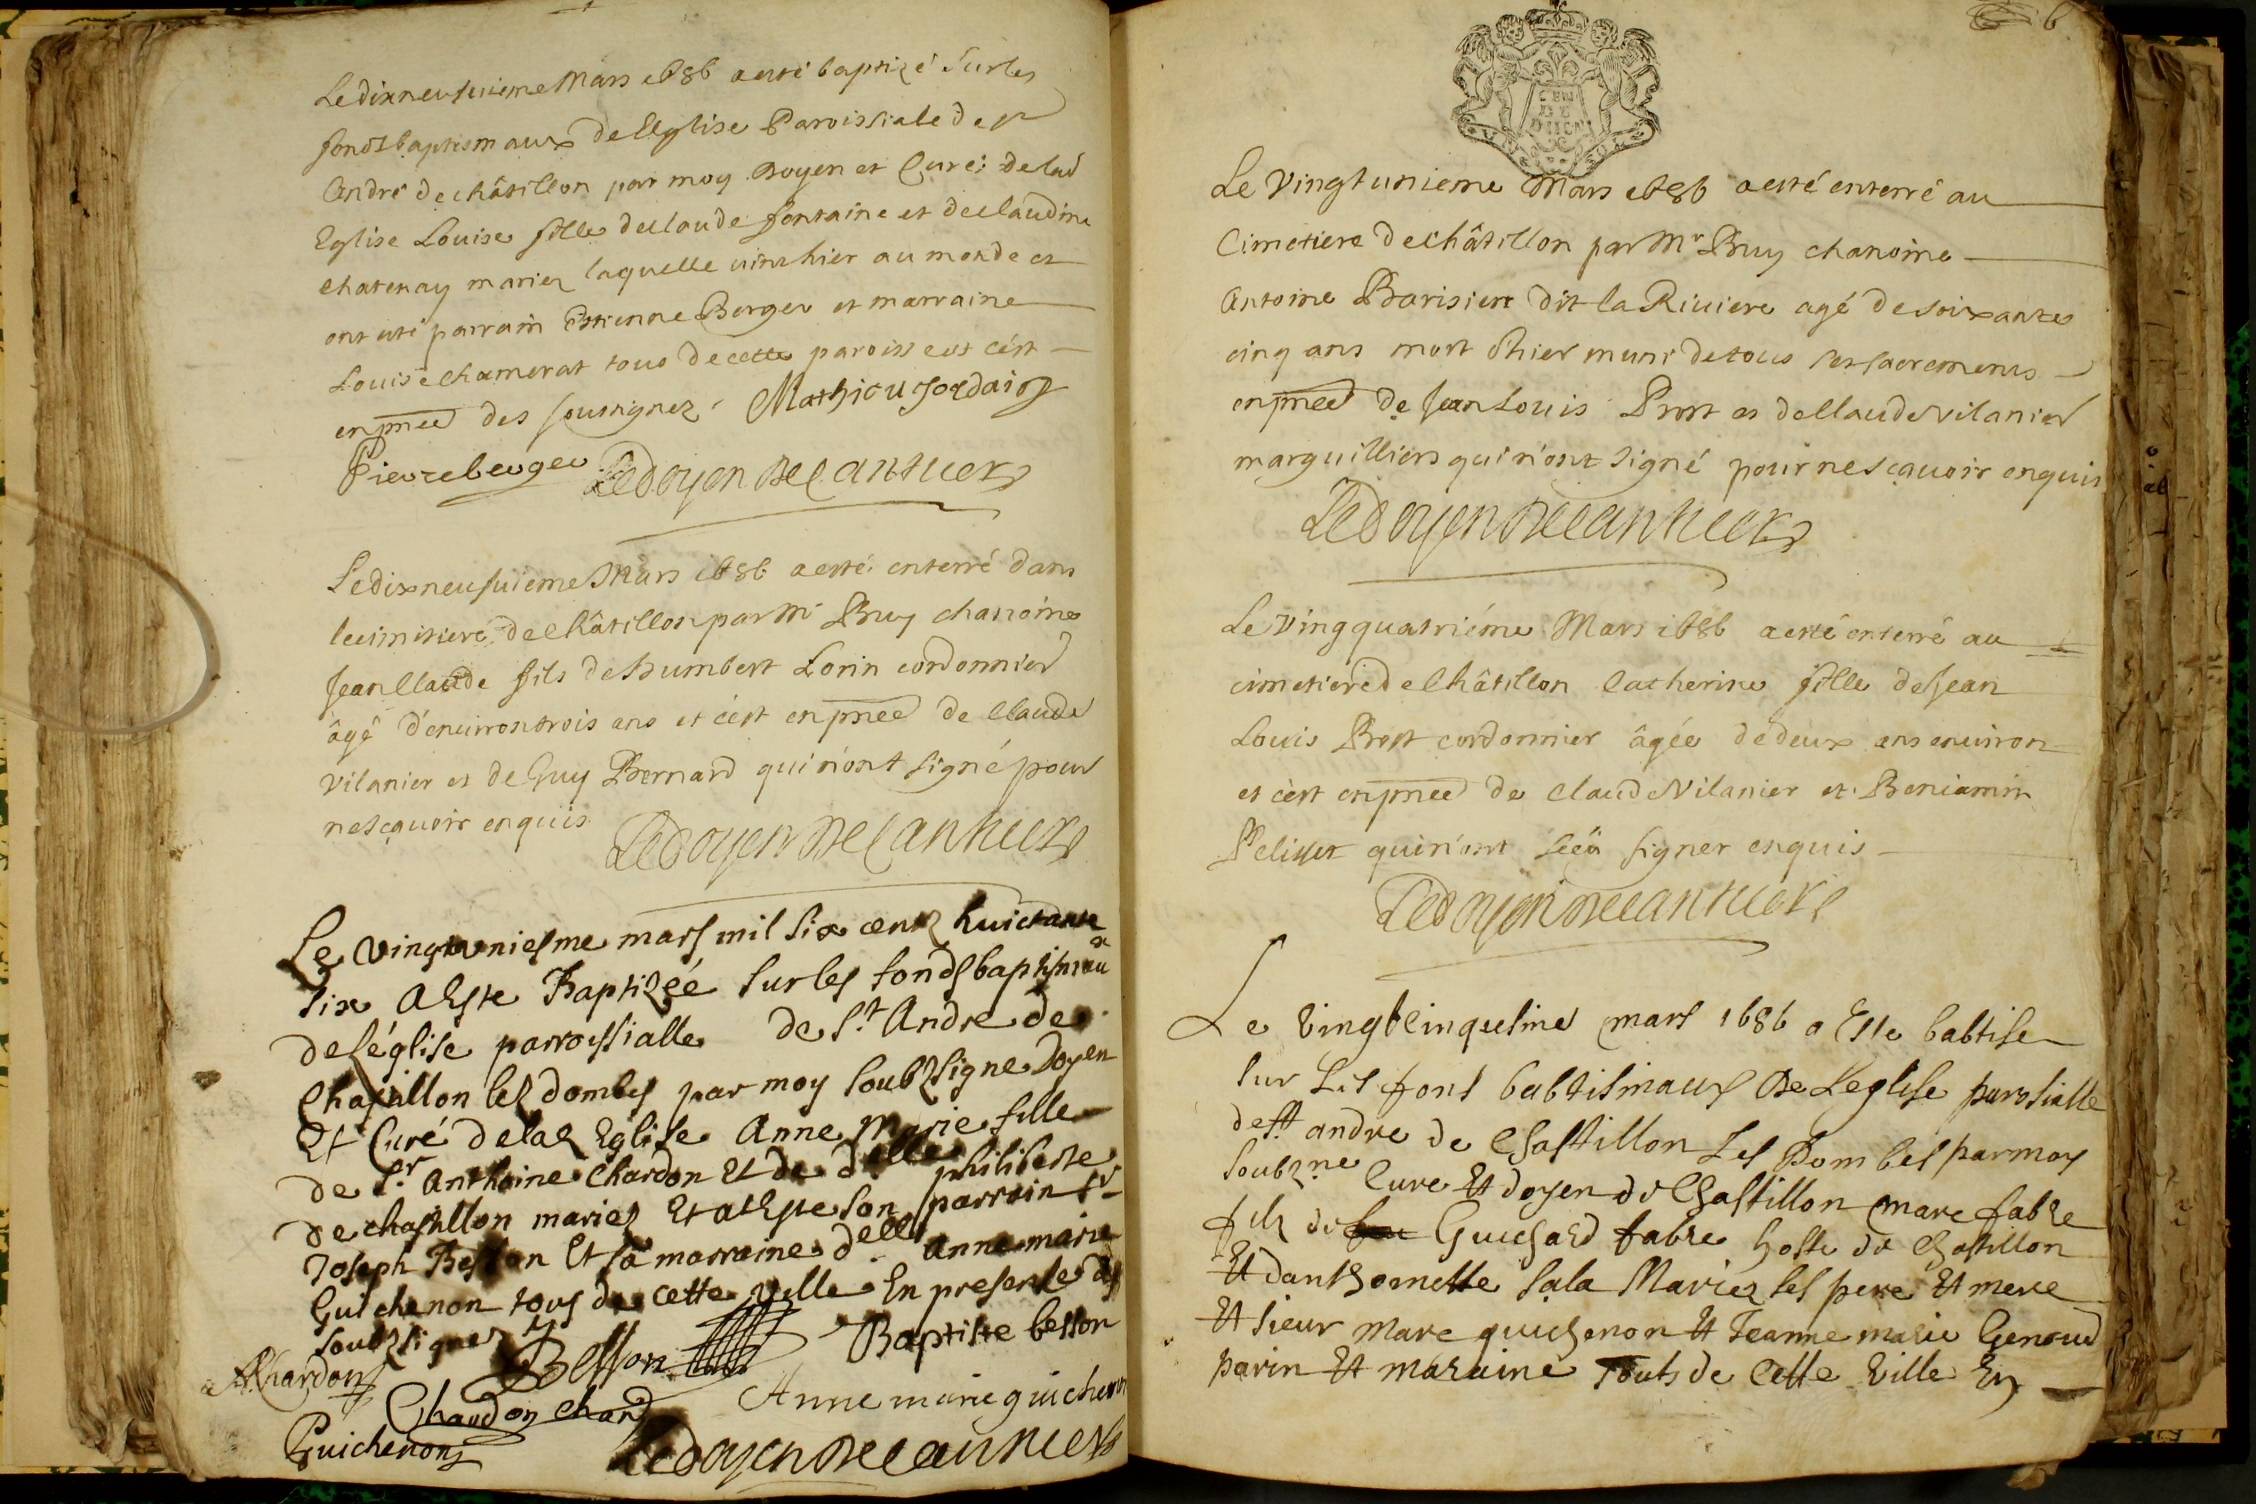 Le dix neufuieme Mars 1686 a esté baptizé sur les
fonds baptismaux de l'Eglise Paroissiale de st
André de châtillon par moy Doyen et Curé de lad
Eglise Louise fille de Claude fontaine et de Claudine
chatenay mariez laquelle vint hier au monde et
ont été parrain Estienne Berger et marraine
Louise chamerat tous de cette paroisse et c'est
en pnce des soussignez. Mathieu Jordain
Pierre berger Le doyen De
Le dix neufuieme Mars 1686 a esté enterré dans
le cimitiere de Châtillon par Mr Buy chanoine
Jean Claude fils de humbert Lorin cordonnier
âgé d'environ trois ans et c'est en pnce de Claude
vilanier et de Guy Bernard qui n'ont signé pour
ne sçavoir enquis Le doyen De
Le vingtuniesme mars mil six centz huictante
six a Este Baptizée sur les fondz baptismaux
de l'église parroissialle de St Andre de
Chastillon lez dombes par moy soubzsigne Doyen
Et Curé de lad Eglise Anne Marie fille
de Sr Anthoine Chardon Et de delle philiberte
de chastillon mariez Et a Este son parrain Sr
Joseph Besson Et sa marraine delle Anne marie
Guichenon tous de cette ville En presence des
soubzsignez
AChardon Besson Baptiste besson
Chardon Anne marie guichenon
Guichenon Le doyen De
6
GEN
DE
Le Vingt unieme Mars 1686 a esté enterré au
Cimetiere de Châtillon par Mr Buy chanoine
Antoine Barisien dit la Riuiere agé de soixante
cinq ans mort d'hier muni de tous ses sacremens
en pnce de Jean Louis Prost et de Claude vilanier
marguilliers qui n'ont signé pour ne sçavoir enquis
Le doyen De
Le Ving quatriéme Mars 1686 a esté enterré au
cimetiere de Châtillon Catherine fille de Jean
Louis Prost cordonnier âgée de deux ans environ
et c'est en pnce de Claude Vilanier et Beniamin
qui n'ont sceu signer enquis
Le doyen De
Le Vingt Cinquesme mars 1686 a Este babtise
sur Les fons babtismaux De L'eglise parosialle
de st andre de Chastillon Les Dombes par moy
soubzne Cure Et doyen de Chastillon marc fabre
filz de Guichard fabre hoste de Chastillon
Et d'anthomette Sala Mariez ses pere Et mere
Et sieur marc guichenon Et Jeanne marie Genoud
parin Et maraine Touts de Cette Ville En